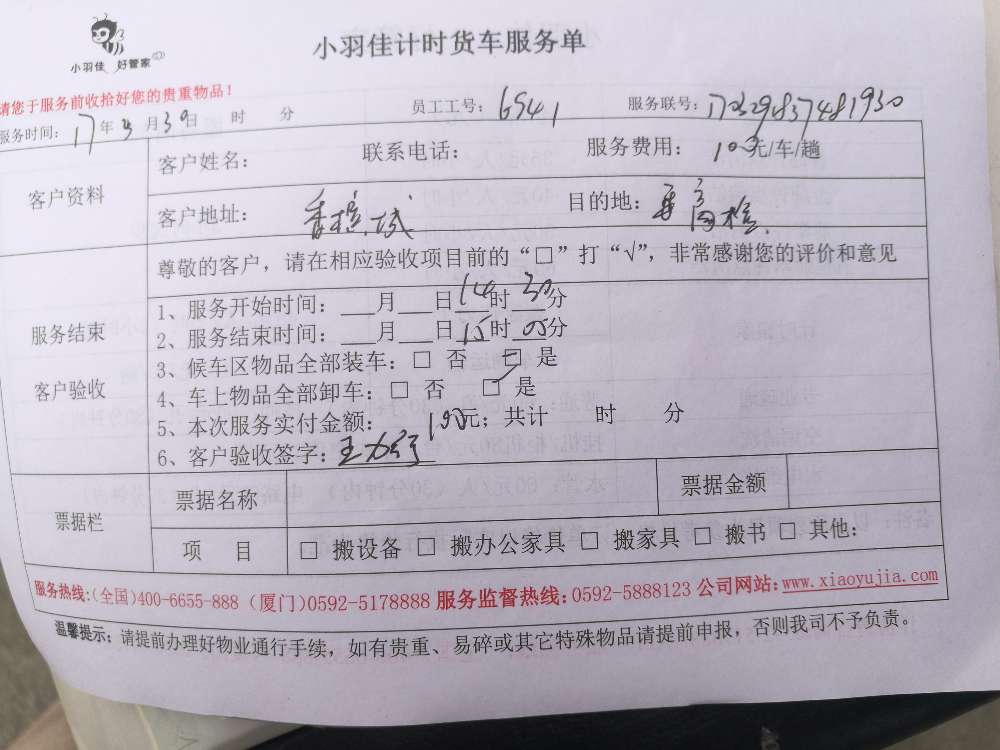 小羽佳 好管家
小羽佳计时货车服务单
请您于服务前收拾好您的贵重物品！
服务时间：17年3月30日 时 分 员工工号：6941 服务联号：172329837481930
客户资料
客户姓名： 联系电话： 服务费用：100元/车/趟
客户地址： 目的地：
服务结束
客户验收
尊敬的客户，请在相应验收项目前的“□”打“√”，非常感谢您的评价和意见
1、服务开始时间：___月___日14时30分
2、服务结束时间：___月___日15时05分
3、候车区物品全部装车：□ 否 □ 是
4、车上物品全部卸车：□ 否 □ 是
5、本次服务实付金额： 100元；共计 时 分
6、客户验收签字：
票据栏
票据名称 票据金额
项 目 □ 搬设备 □ 搬办公家具 □ 搬家具 □ 搬书 □ 其他：
服务热线：(全国)400-6655-888 (厦门)0592-5178888 服务监督热线：0592-5888123 公司网站：www.xiaoyujia.com
温馨提示：请提前办理好物业通行手续，如有贵重、易碎或其它特殊物品请提前申报，否则我司不予负责。